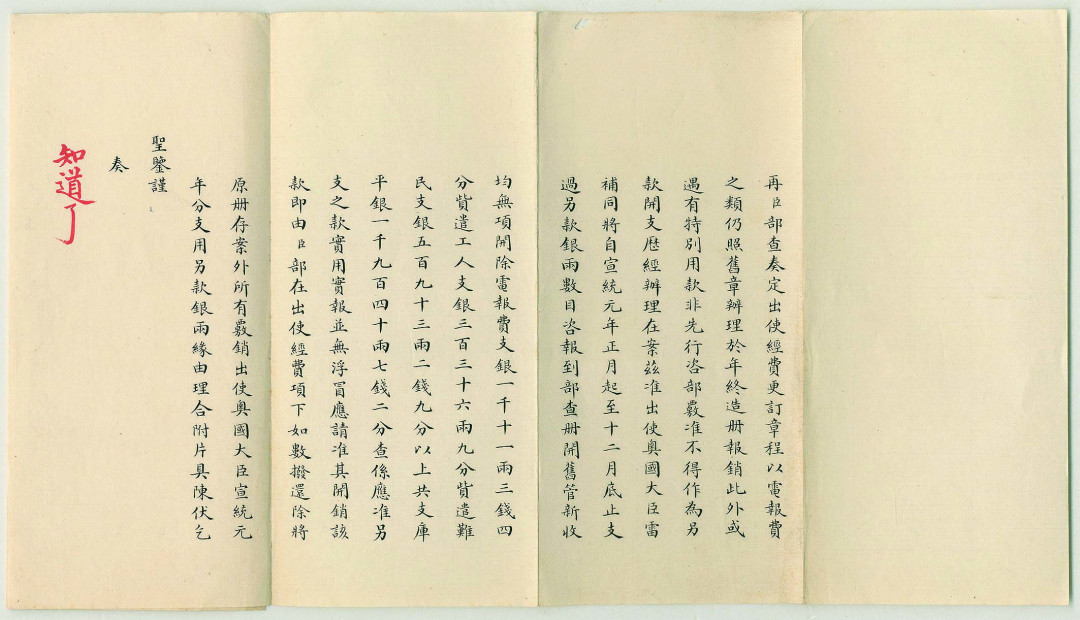 再臣部查奏定出使經費更訂章程以電報費
之類仍照舊章辦理於年終造冊報銷此外或
遇有特別用款非先行咨部覈准不得作為另
款開支歷經辦理在案茲准出使奧國大臣雷
補同將自宣統元年正月起至十二月底止支
過另款銀兩數目咨報到部查冊開舊管新收
均無項開除電報費支銀一千十一兩三錢四
分貲遣工人支銀三百三十六兩九分貲遣難
民支銀五百九十三兩二錢九分以上共支庫
平銀一千九百四十兩七錢二分查係應准另
支之款實用實報並無浮冒應請准其開銷該
款即由臣部在出使經費項下如數撥還除將
原冊存案外所有覈銷出使奧國大臣宣統元
年分支用另款銀兩緣由理合附片具陳伏乞
聖鑒謹
奏
知道了